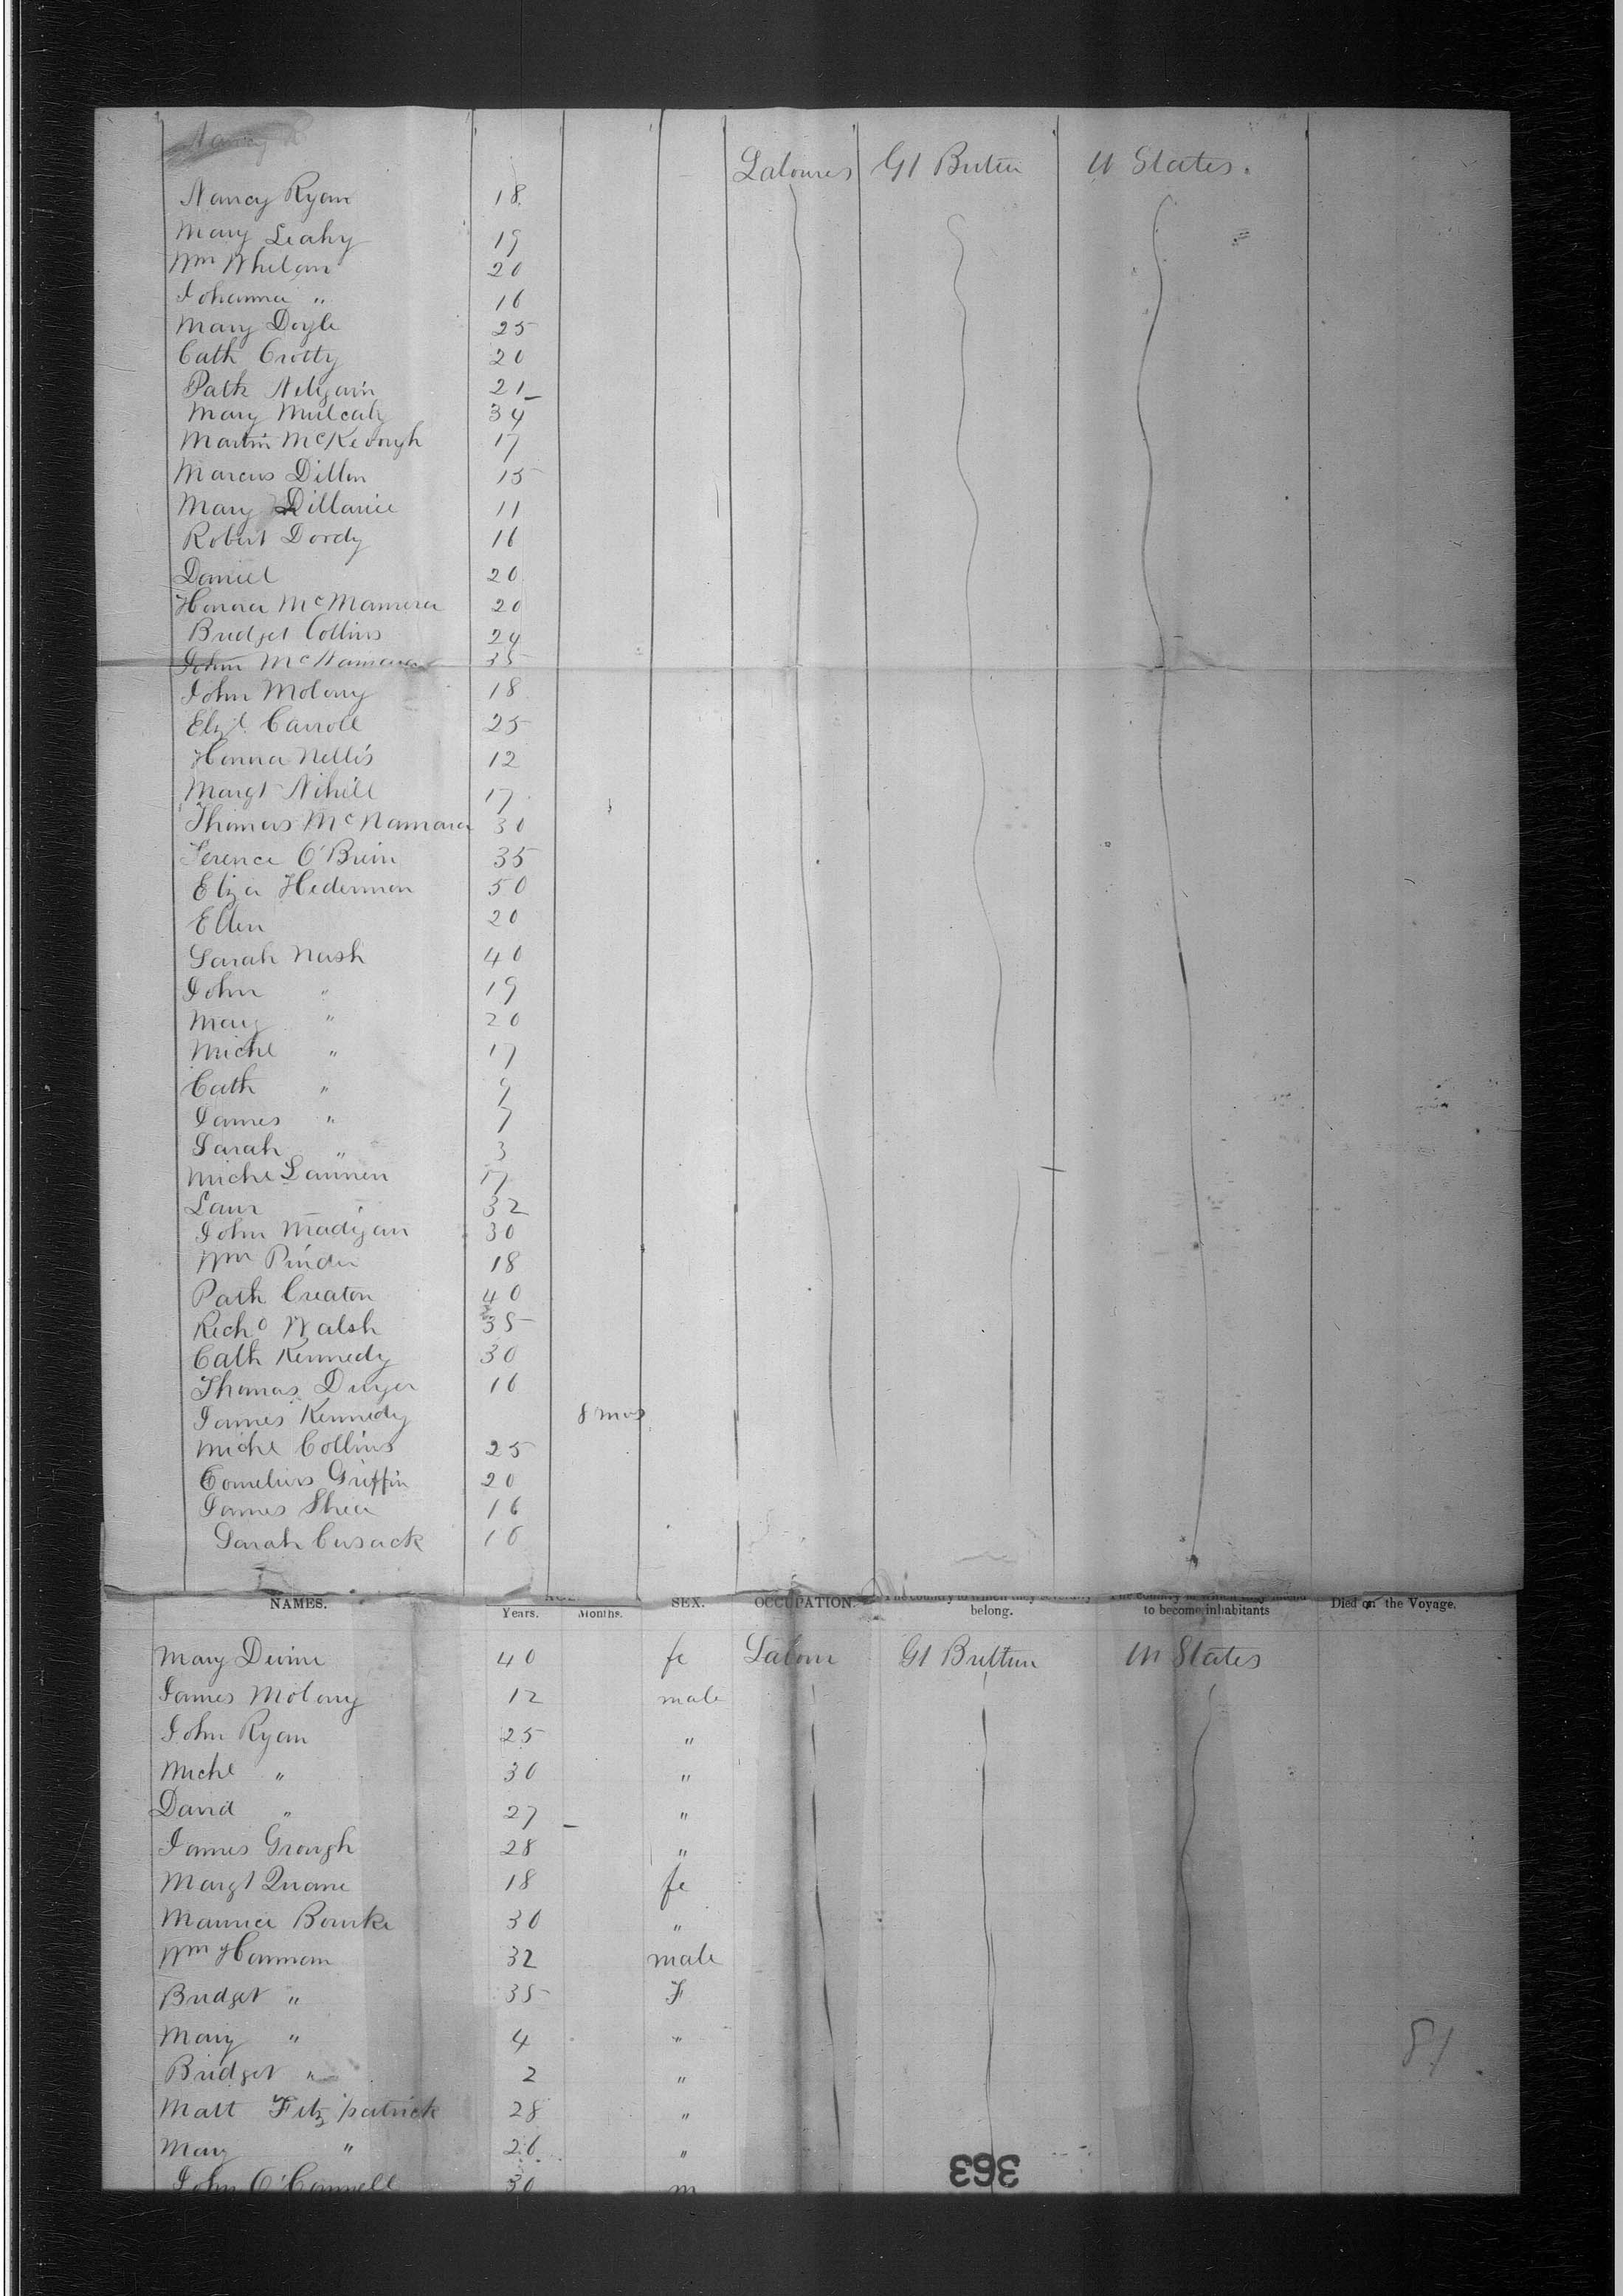 Nancy
Labourers Gt Britain U States.
Nancy Ryan 18
Mary Leahy 19
Wm Whelan 20
Johanna " 16
Mary Doyle 25
Cath Crotty 20
Patk 21
Mary Mulcahy 34
Martin McKeough 17
Marcus Dillon 15
Mary 11
Robert Dordy 16
Daniel 20
Honora McMamera 20
Bridget Collins 24
John McNamara 35
John Molony 18
Elizt Carroll 25
Honora Nellis 12
Margt Nihill 17
Thomas McNamara 30
Terence O'Brein 35
Eliza Hedermon 50
Ellen 20
Sarah Nash 40
John " 19
Mary " 20
Michl " 17
Cath " 9
James " 7
Sarah " 3
Michl Lannen 17
Laur 32
John Madigan 30
Wm Pinder 18
Patk Creaton 40
Richd Walsh 35
Cath Kennedy 30
Thomas Dwyer 16
James Kennedy 8 mos
Michl Collins 25
Cornelius Griffin 20
James Shea 16
Sarah Cusack 16
NAMES. Years. Months. SEX. OCCUPATION. The country to which they severally belong. The country in which they intend to become inhabitants Died on the Voyage.
Mary Devine 40 fe Labour Gt Brittan Un States
James Molony 12 male
John Ryan 25 "
Michl " 30 "
David " 27 "
James Grough 28 "
Margt Quane 18 fe
Maurice Bourke 30 "
Wm Hannan 32 male
Bridget " 35 F
Mary " 4 "
Bridget " 2 "
Matt Fitzpatrick 28 "
Mary " 26 "
John O'Connell 30 m
81
363